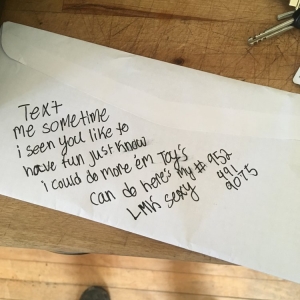 Text
me sometime
i seen you like to
have fun just know
i could do more em Toy's
can do here's my # 952
LMK sexy 491
9075